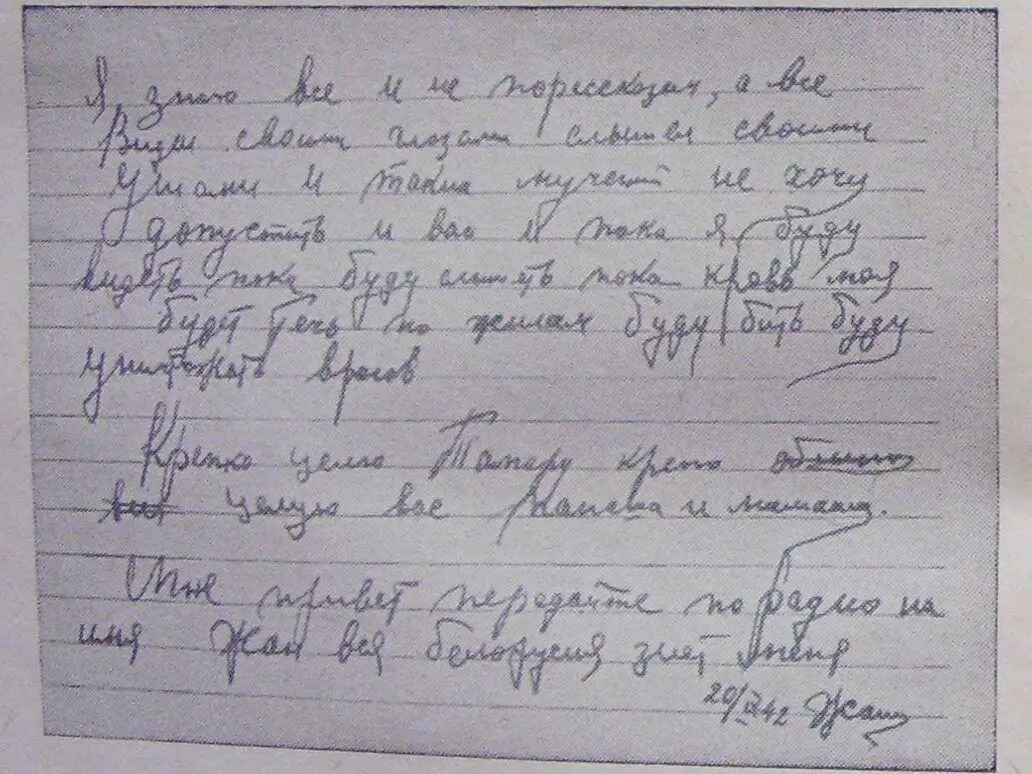 Я знаю все и не порассказам, а все
Видел своими глазами слышал своими
Ушами и таких мучений не хочу
допустить и вас и пока я буду
видеть пока буду слышать пока кровь моя
будет течь по жилам буду бить буду
уничтожать врагов
Крепко целую Тамару крепко
целую вас папаша и мамаша.
Мне привет передайте по радио на
имя Жан вся белорусия знает меня
20/IX 42 Жан